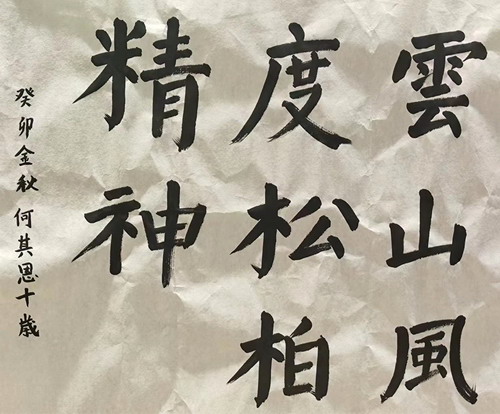 雲山風
度松柏
精神
癸卯金秋何其恩十歲